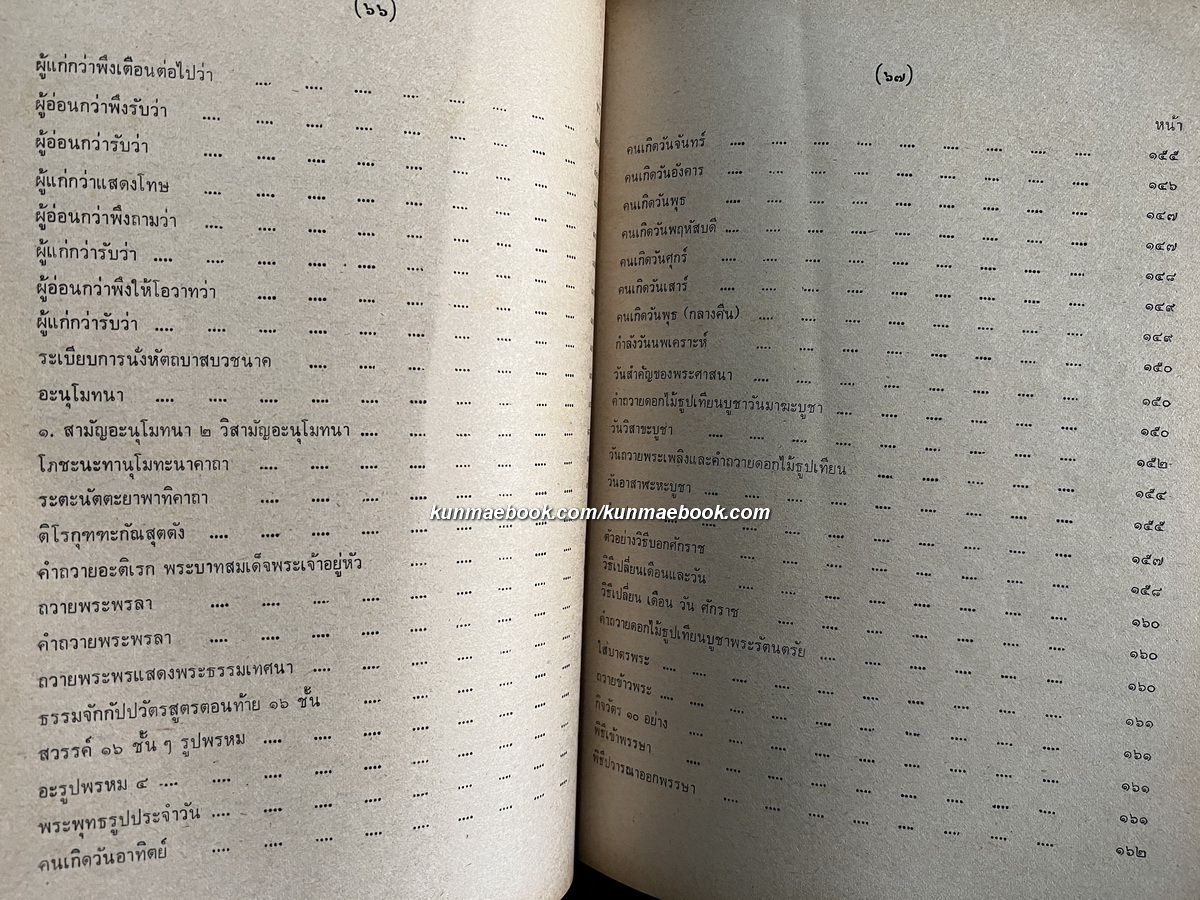 (๖๖)
ผู้แก่กว่าพึงเตือนต่อไปว่า .... .... .... .... .... .... ....
ผู้อ่อนกว่าพึงรับว่า .... .... .... .... .... .... .... ....
ผู้อ่อนกว่ารับว่า .... .... .... .... .... .... .... ....
ผู้แก่กว่าแสดงโทษ .... .... .... .... .... .... .... ....
ผู้อ่อนกว่าพึงถามว่า .... .... .... .... .... .... .... ....
ผู้แก่กว่ารับว่า .... .... .... .... .... .... .... .... ....
ผู้อ่อนกว่าพึงให้โอวาทว่า .... .... .... .... .... .... ....
ผู้แก่กว่ารับว่า .... .... .... .... .... .... .... .... ....
ระเบียบการนั่งหัตถบาสบวชนาค .... .... .... .... .... ....
อะนุโมทนา .... .... .... .... .... .... .... .... ....
๑. สามัญอะนุโมทนา ๒ วิสามัญอะนุโมทนา .... .... .... .... ....
โภชะนะทานุโมทะนาคาถา .... .... .... .... .... .... ....
ระตะนัตตะยาพาทิคาถา .... .... .... .... .... .... ....
ติโรกุฑฑะกัณสุตตัง .... .... .... .... .... .... .... ....
คำถวายอะติเรก พระบาทสมเด็จพระเจ้าอยู่หัว .... .... .... ....
ถวายพระพรลา .... .... .... .... .... .... .... ....
คำถวายพระพรลา .... .... .... .... .... .... .... ....
ถวายพระพรแสดงพระธรรมเทศนา .... .... .... .... .... ....
ธรรมจักกัปปวัตรสูตรตอนท้าย ๑๖ ชั้น .... .... .... .... ....
สวรรค์ ๑๖ ชั้น ๆ รูปพรหม .... .... .... .... .... .... ....
อะรูปพรหม ๔ .... .... .... .... .... .... .... .... ....
พระพุทธรูปประจำวัน .... .... .... .... .... .... .... ....
คนเกิดวันอาทิตย์ .... .... .... .... .... .... .... ....
(๖๗)
หน้า
คนเกิดวันจันทร์ .... .... .... .... .... .... .... .... .... ๑๔๕
คนเกิดวันอังคาร .... .... .... .... .... .... .... .... .... ๑๔๖
คนเกิดวันพุธ .... .... .... .... .... .... .... .... .... ๑๔๗
คนเกิดวันพฤหัสบดี .... .... .... .... .... .... .... .... .... ๑๔๗
คนเกิดวันศุกร์ .... .... .... .... .... .... .... .... .... ๑๔๘
คนเกิดวันเสาร์ .... .... .... .... .... .... .... .... .... ๑๔๙
คนเกิดวันพุธ (กลางคืน) .... .... .... .... .... .... .... .... ๑๔๙
กำลังวันนพเคราะห์ .... .... .... .... .... .... .... .... ๑๕๐
วันสำคัญของพระศาสนา .... .... .... .... .... .... .... .... ๑๕๐
คำถวายดอกไม้ธูปเทียนบูชาวันมาฆะบูชา .... .... .... .... .... .... ๑๕๐
วันวิสาขะบูชา .... .... .... .... .... .... .... .... .... ๑๕๒
วันถวายพระเพลิงและคำถวายดอกไม้ธูปเทียน .... .... .... .... .... ๑๕๔
วันอาสาฬะหะบูชา .... .... .... .... .... .... .... .... .... ๑๕๕
.... .... .... .... .... .... .... ๑๕๗
ตัวอย่างวิธีบอกศักราช .... .... .... .... .... .... .... .... ๑๕๘
วิธีเปลี่ยนเดือนและวัน .... .... .... .... .... .... .... .... ๑๖๐
วิธีเปลี่ยน เดือน วัน ศักราช .... .... .... .... .... .... .... ๑๖๐
คำถวายดอกไม้ธูปเทียนบูชาพระรัตนตรัย .... .... .... .... .... .... ๑๖๐
ใส่บาตรพระ .... .... .... .... .... .... .... .... .... ๑๖๑
ถวายข้าวพระ .... .... .... .... .... .... .... .... .... ๑๖๑
กิจวัตร ๑๐ อย่าง .... .... .... .... .... .... .... .... ๑๖๑
พิธีเข้าพรรษา .... .... .... .... .... .... .... .... .... ๑๖๑
พิธีปวารณาออกพรรษา .... .... .... .... .... .... .... .... ๑๖๒
kunmaebook.com/kunmaebook.com